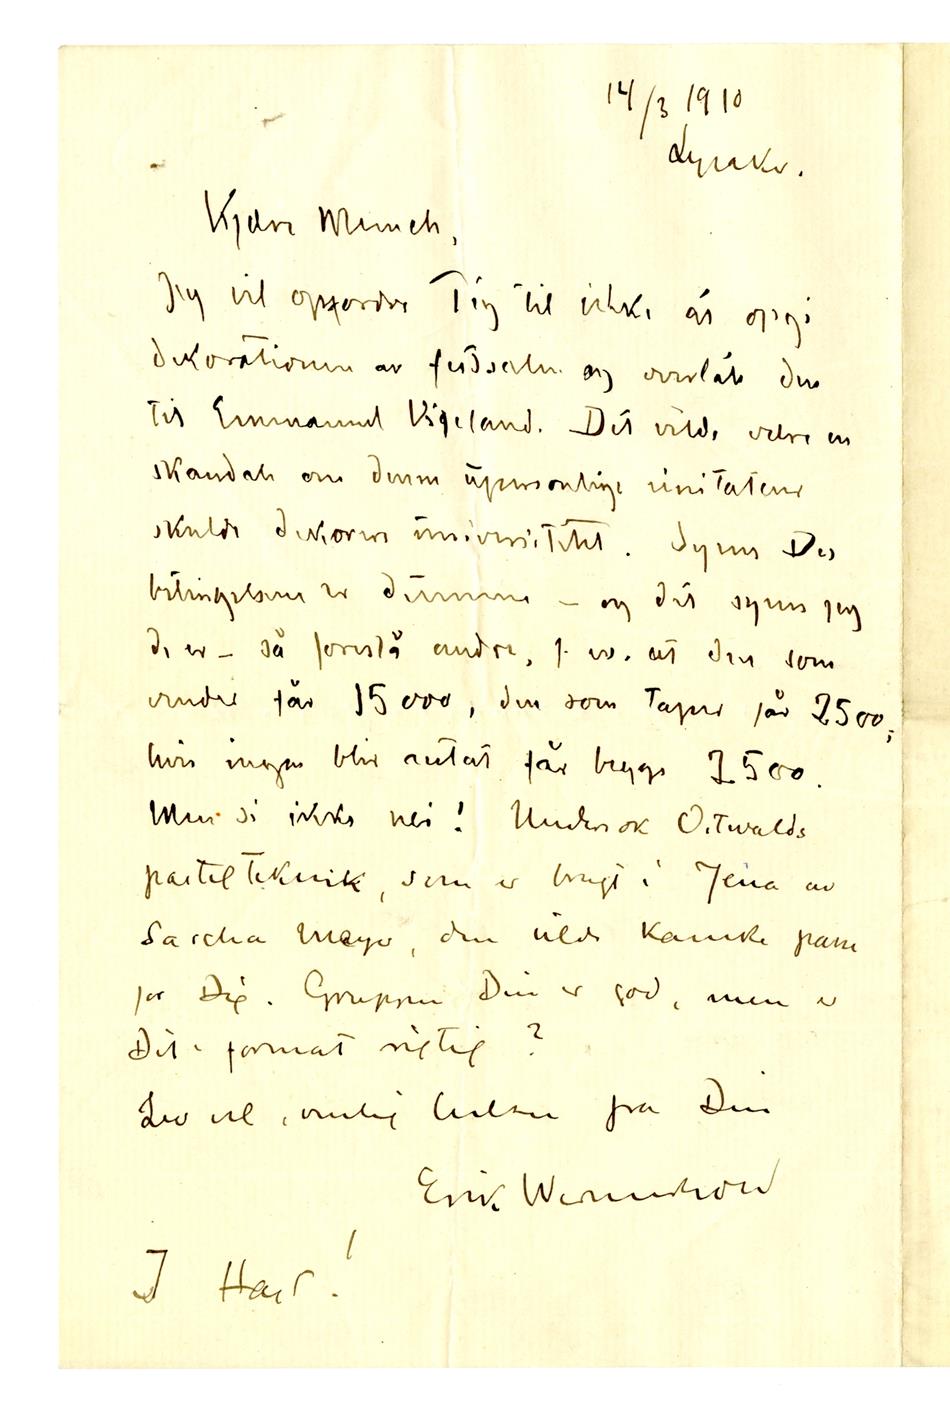 14/3 1910
Lysaker.
Kjære Munch,
Jeg vil opfordre Dig til ikke at opgi
dekorationen av festsalen og overlate den
til Emmanuel Vigeland. Det vilde være en
skandale om denne upersonlige imitatør
skulde dekorere universitetet. Synes Du
betingelsene er dumme – og det synes jeg
de er – så foreslå andre, f. ex. at den som
vinder får 15000, den som taper får 2500,
hvis ingen blir antat får begge 7500.
Men si ikke nei! Undersøk Ostwalds
pastelteknik, som er brugt i Jena av
Sascha
den vilde kanske passe
for Dig. Gruppen Din er god, men er
format rigtig?
Lev vel, venlig hilsen fra Din
Erik Werenskiold
I Hast!